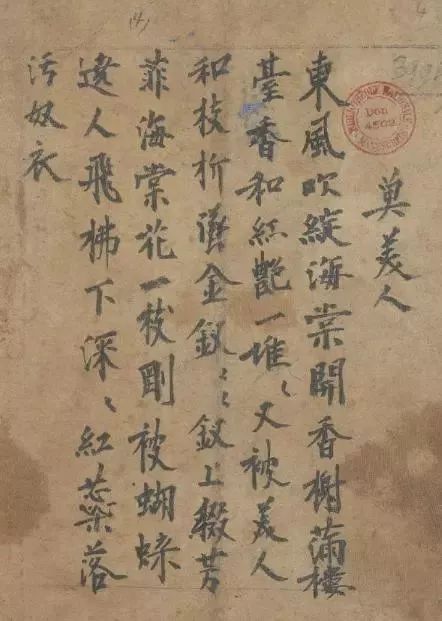 (4)
4
DON
4502
奠美人
東風吹綻海棠開香榭滿樓
臺香和紅艷一堆〻又被美人
和枝折墜金釵〻〻釵上綴芳
菲海棠花一枝剛被蝴蝶
遶人飛拂下深〻紅蘂落
污奴衣